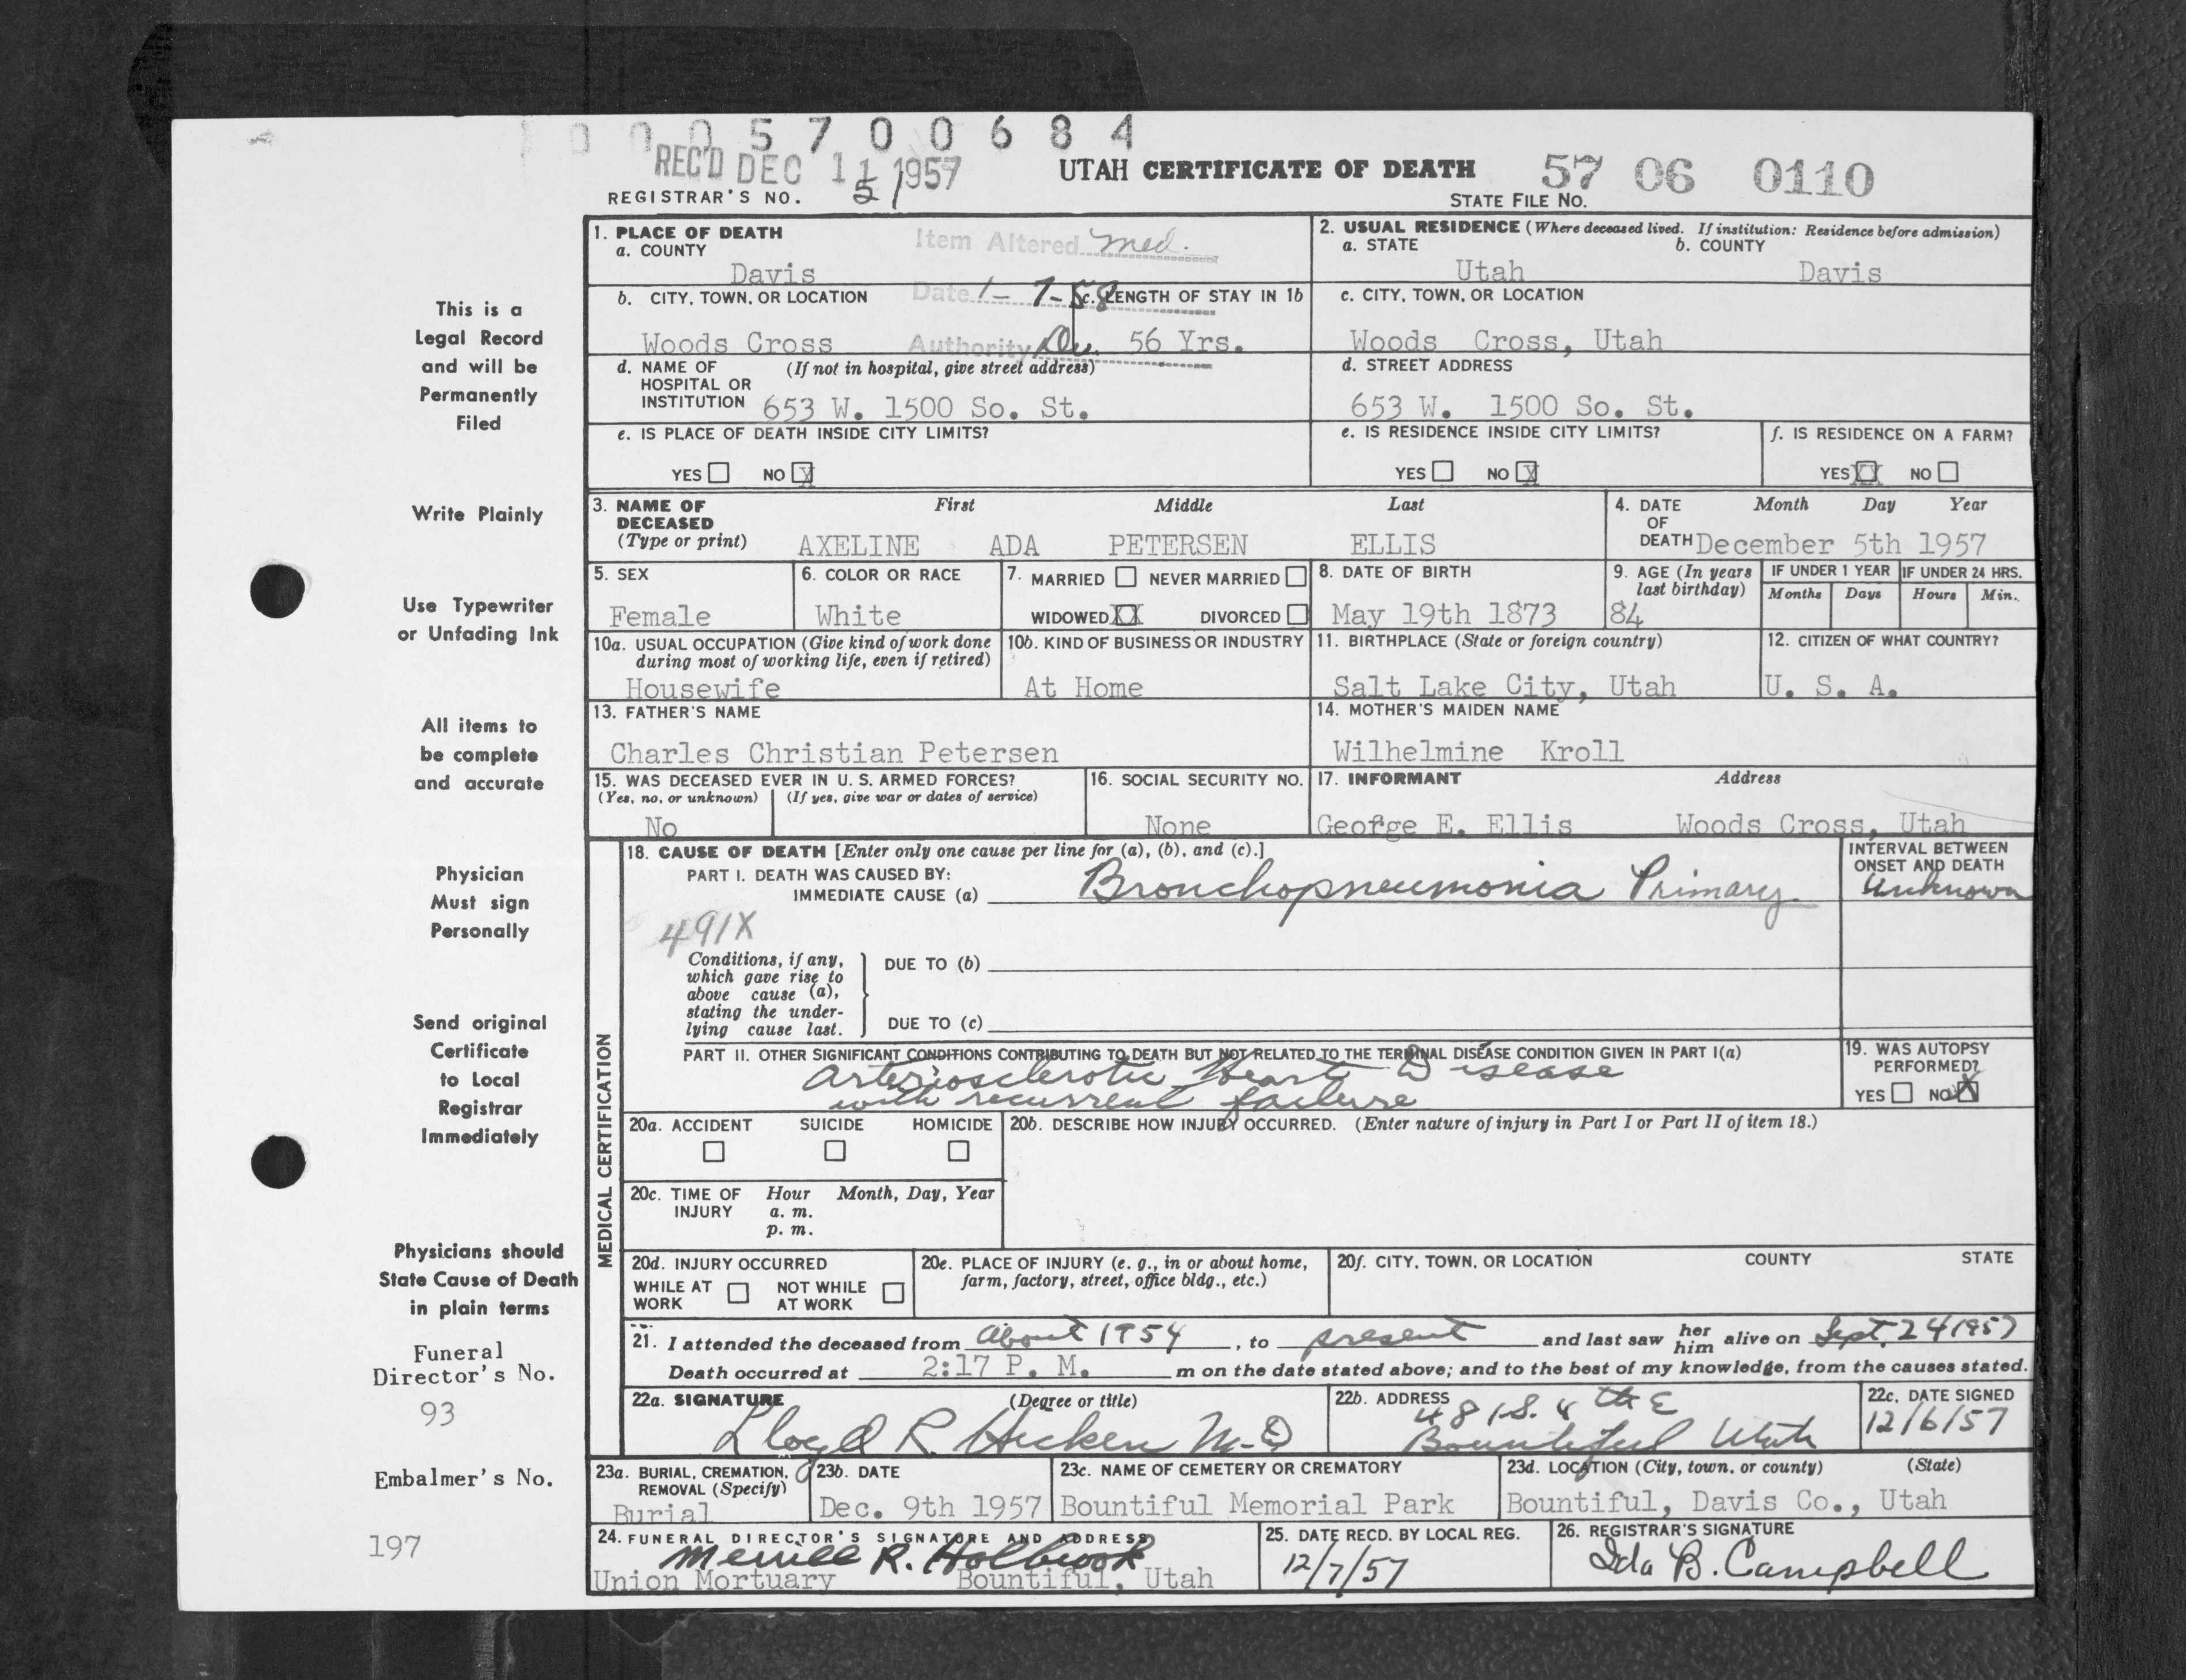 0 0 0 5 7 0 0 6 8 4
REC'D DEC 11 1957
UTAH CERTIFICATE OF DEATH
57 06 0110
REGISTRAR'S NO.
STATE FILE NO.
1. PLACE OF DEATH
a. COUNTY
Davis
Item Altered med.
2. USUAL RESIDENCE (Where deceased lived. If institution: Residence before admission)
a. STATE
Utah
b. COUNTY
Davis
b. CITY, TOWN, OR LOCATION
Woods Cross
Date 1-7-58
Authority
c. LENGTH OF STAY IN 1b
56 Yrs.
c. CITY, TOWN, OR LOCATION
Woods Cross, Utah
d. NAME OF HOSPITAL OR INSTITUTION (If not in hospital, give street address)
653 W. 1500 So. St.
d. STREET ADDRESS
653 W. 1500 So. St.
e. IS PLACE OF DEATH INSIDE CITY LIMITS?
YES NO X
e. IS RESIDENCE INSIDE CITY LIMITS?
YES NO X
f. IS RESIDENCE ON A FARM?
YES XX NO
3. NAME OF DECEASED (Type or print)
First Middle Last
AXELINE ADA PETERSEN ELLIS
4. DATE OF DEATH
Month Day Year
December 5th 1957
5. SEX
Female
6. COLOR OR RACE
White
7. MARRIED NEVER MARRIED
WIDOWED XX DIVORCED
8. DATE OF BIRTH
May 19th 1873
9. AGE (In years last birthday)
84
IF UNDER 1 YEAR
Months Days
IF UNDER 24 HRS.
Hours Min.
10a. USUAL OCCUPATION (Give kind of work done during most of working life, even if retired)
Housewife
10b. KIND OF BUSINESS OR INDUSTRY
At Home
11. BIRTHPLACE (State or foreign country)
Salt Lake City, Utah
12. CITIZEN OF WHAT COUNTRY?
U. S. A.
13. FATHER'S NAME
Charles Christian Petersen
14. MOTHER'S MAIDEN NAME
Wilhelmine Kroll
15. WAS DECEASED EVER IN U. S. ARMED FORCES?
(Yes, no, or unknown) (If yes, give war or dates of service)
No
16. SOCIAL SECURITY NO.
None
17. INFORMANT Address
George E. Ellis Woods Cross, Utah
MEDICAL CERTIFICATION
18. CAUSE OF DEATH [Enter only one cause per line for (a), (b), and (c).]
PART I. DEATH WAS CAUSED BY:
IMMEDIATE CAUSE (a) Bronchopneumonia Primary
INTERVAL BETWEEN ONSET AND DEATH
Unknown
491X
Conditions, if any, which gave rise to above cause (a), stating the underlying cause last.
DUE TO (b)
DUE TO (c)
PART II. OTHER SIGNIFICANT CONDITIONS CONTRIBUTING TO DEATH BUT NOT RELATED TO THE TERMINAL DISEASE CONDITION GIVEN IN PART I(a)
Arteriosclerotic Heart Disease
with recurrent failure
19. WAS AUTOPSY PERFORMED?
YES NO X
20a. ACCIDENT SUICIDE HOMICIDE
20b. DESCRIBE HOW INJURY OCCURRED. (Enter nature of injury in Part I or Part II of item 18.)
20c. TIME OF INJURY Hour Month, Day, Year
a. m.
p. m.
20d. INJURY OCCURRED
WHILE AT WORK NOT WHILE AT WORK
20e. PLACE OF INJURY (e. g., in or about home, farm, factory, street, office bldg., etc.)
20f. CITY, TOWN, OR LOCATION COUNTY STATE
21. I attended the deceased from About 1954, to present and last saw her him alive on Sept. 24 1957
Death occurred at 2:17 P. M. m on the date stated above; and to the best of my knowledge, from the causes stated.
22a. SIGNATURE (Degree or title)
Lloyd R. Hicken M.D
22b. ADDRESS
481 S. 4th E
Bountiful Utah
22c. DATE SIGNED
12/6/57
23a. BURIAL, CREMATION, REMOVAL (Specify)
Burial
23b. DATE
Dec. 9th 1957
23c. NAME OF CEMETERY OR CREMATORY
Bountiful Memorial Park
23d. LOCATION (City, town, or county) (State)
Bountiful, Davis Co., Utah
24. FUNERAL DIRECTOR'S SIGNATURE AND ADDRESS
Merrill R. Holbrook
Union Mortuary Bountiful, Utah
25. DATE RECD. BY LOCAL REG.
12/7/57
26. REGISTRAR'S SIGNATURE
Ida B. Campbell
This is a
Legal Record
and will be
Permanently
Filed
Write Plainly
Use Typewriter
or Unfading Ink
All items to
be complete
and accurate
Physician
Must sign
Personally
Send original
Certificate
to Local
Registrar
Immediately
Physicians should
State Cause of Death
in plain terms
Funeral
Director's No.
93
Embalmer's No.
197